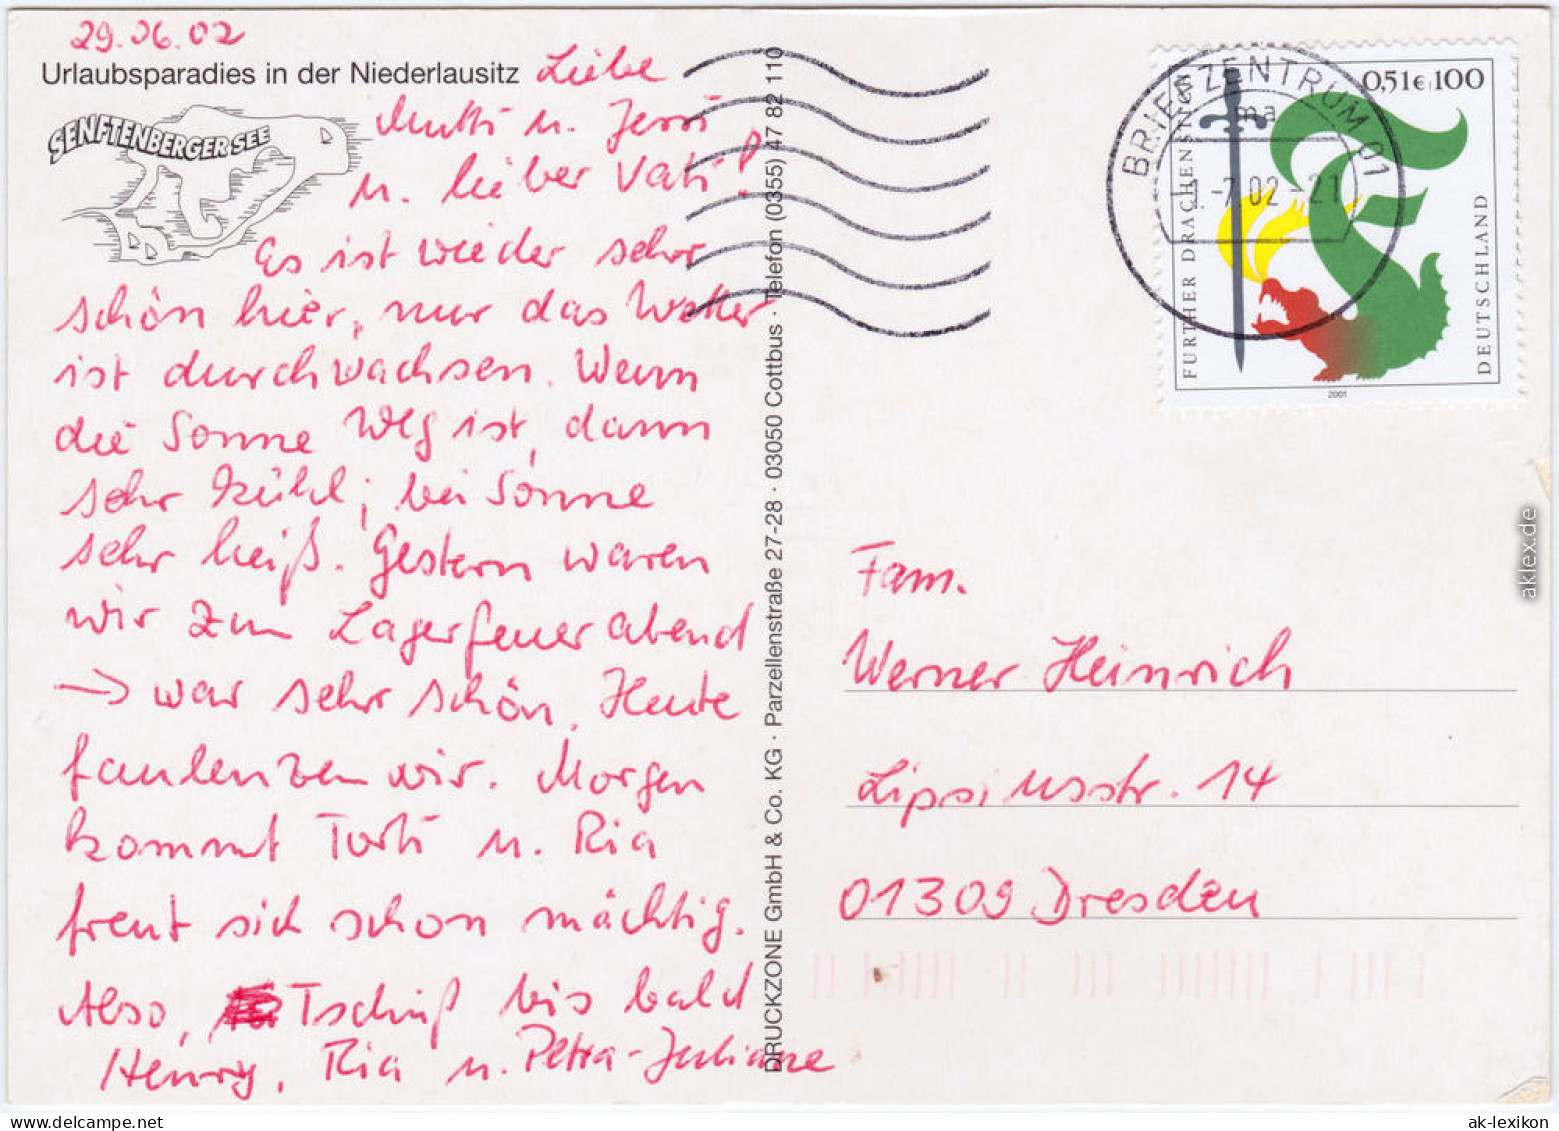 29.06.02
Urlaubsparadies in der Niederlausitz
SENFTENBERGER SEE
Liebe
Mutti u. Jerri
u. lieber Vati!
Es ist wieder sehr
schön hier, nur das Wetter
ist durchwachsen. Wenn
die Sonne weg ist, dann
sehr kühl; bei Sonne
sehr heiß. Gestern waren
wir zum Lagerfeuerabend
→ war sehr schön. Heute
faulenzen wir. Morgen
kommt Torti u. Ria
freut sich schon mächtig.
Also, Tschüß bis bald
Henry, Ria u. Petra-Juliane
DRUCKZONE GmbH & Co. KG · Parzellenstraße 27-28 · 03050 Cottbus · Telefon (0355) 47 82 110
BRIEFZENTRUM 01
ma
-7.02-21
0,51€ 100
FURTHER DRACHENSTICH
DEUTSCHLAND
2001
Fam.
Werner Heinrich
Lipsiusstr. 14
01309 Dresden
aklex.de
www.delcampe.net
ak-lexikon